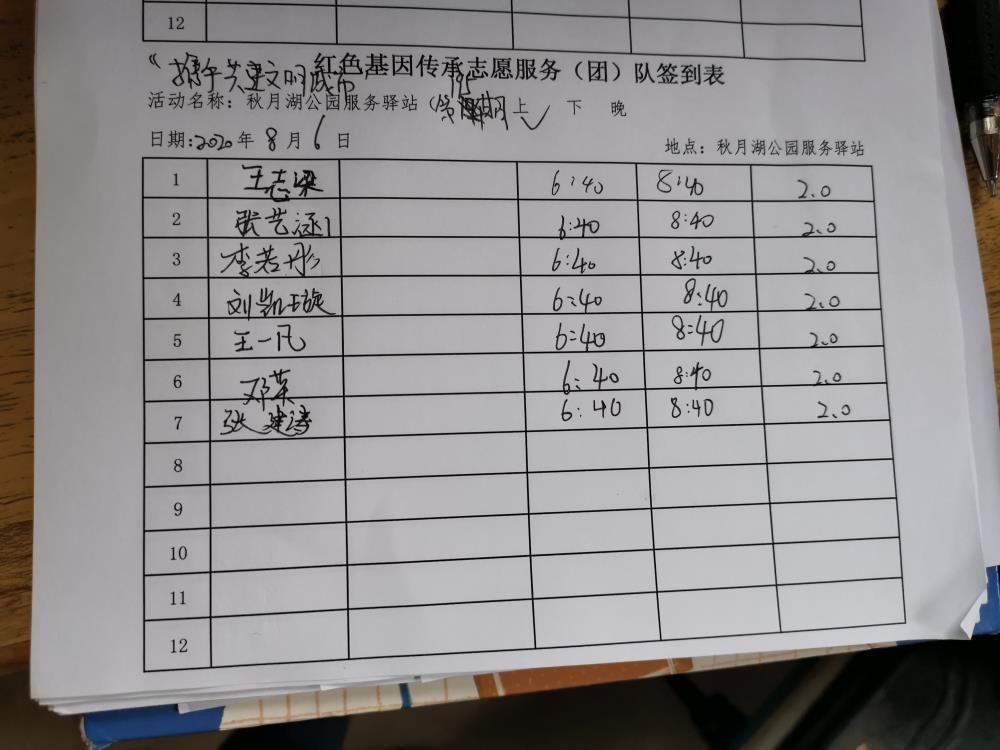 12
红色基因传承志愿服务（团）队签到表
活动名称：秋月湖公园服务驿站（ 上 ✓ 下 晚
日期：2020年 8 月 6 日 地点：秋月湖公园服务驿站
1 王志梁 6:40 8:40 2.0
2 张艺涵 6:40 8:40 2.0
3 李若彤 6:40 8:40 2.0
4 刘凯旋 6:40 8:40 2.0
5 王一凡 6:40 8:40 2.0
6 邓荣 6:40 8:40 2.0
7 张建涛 6:40 8:40 2.0
8
9
10
11
12